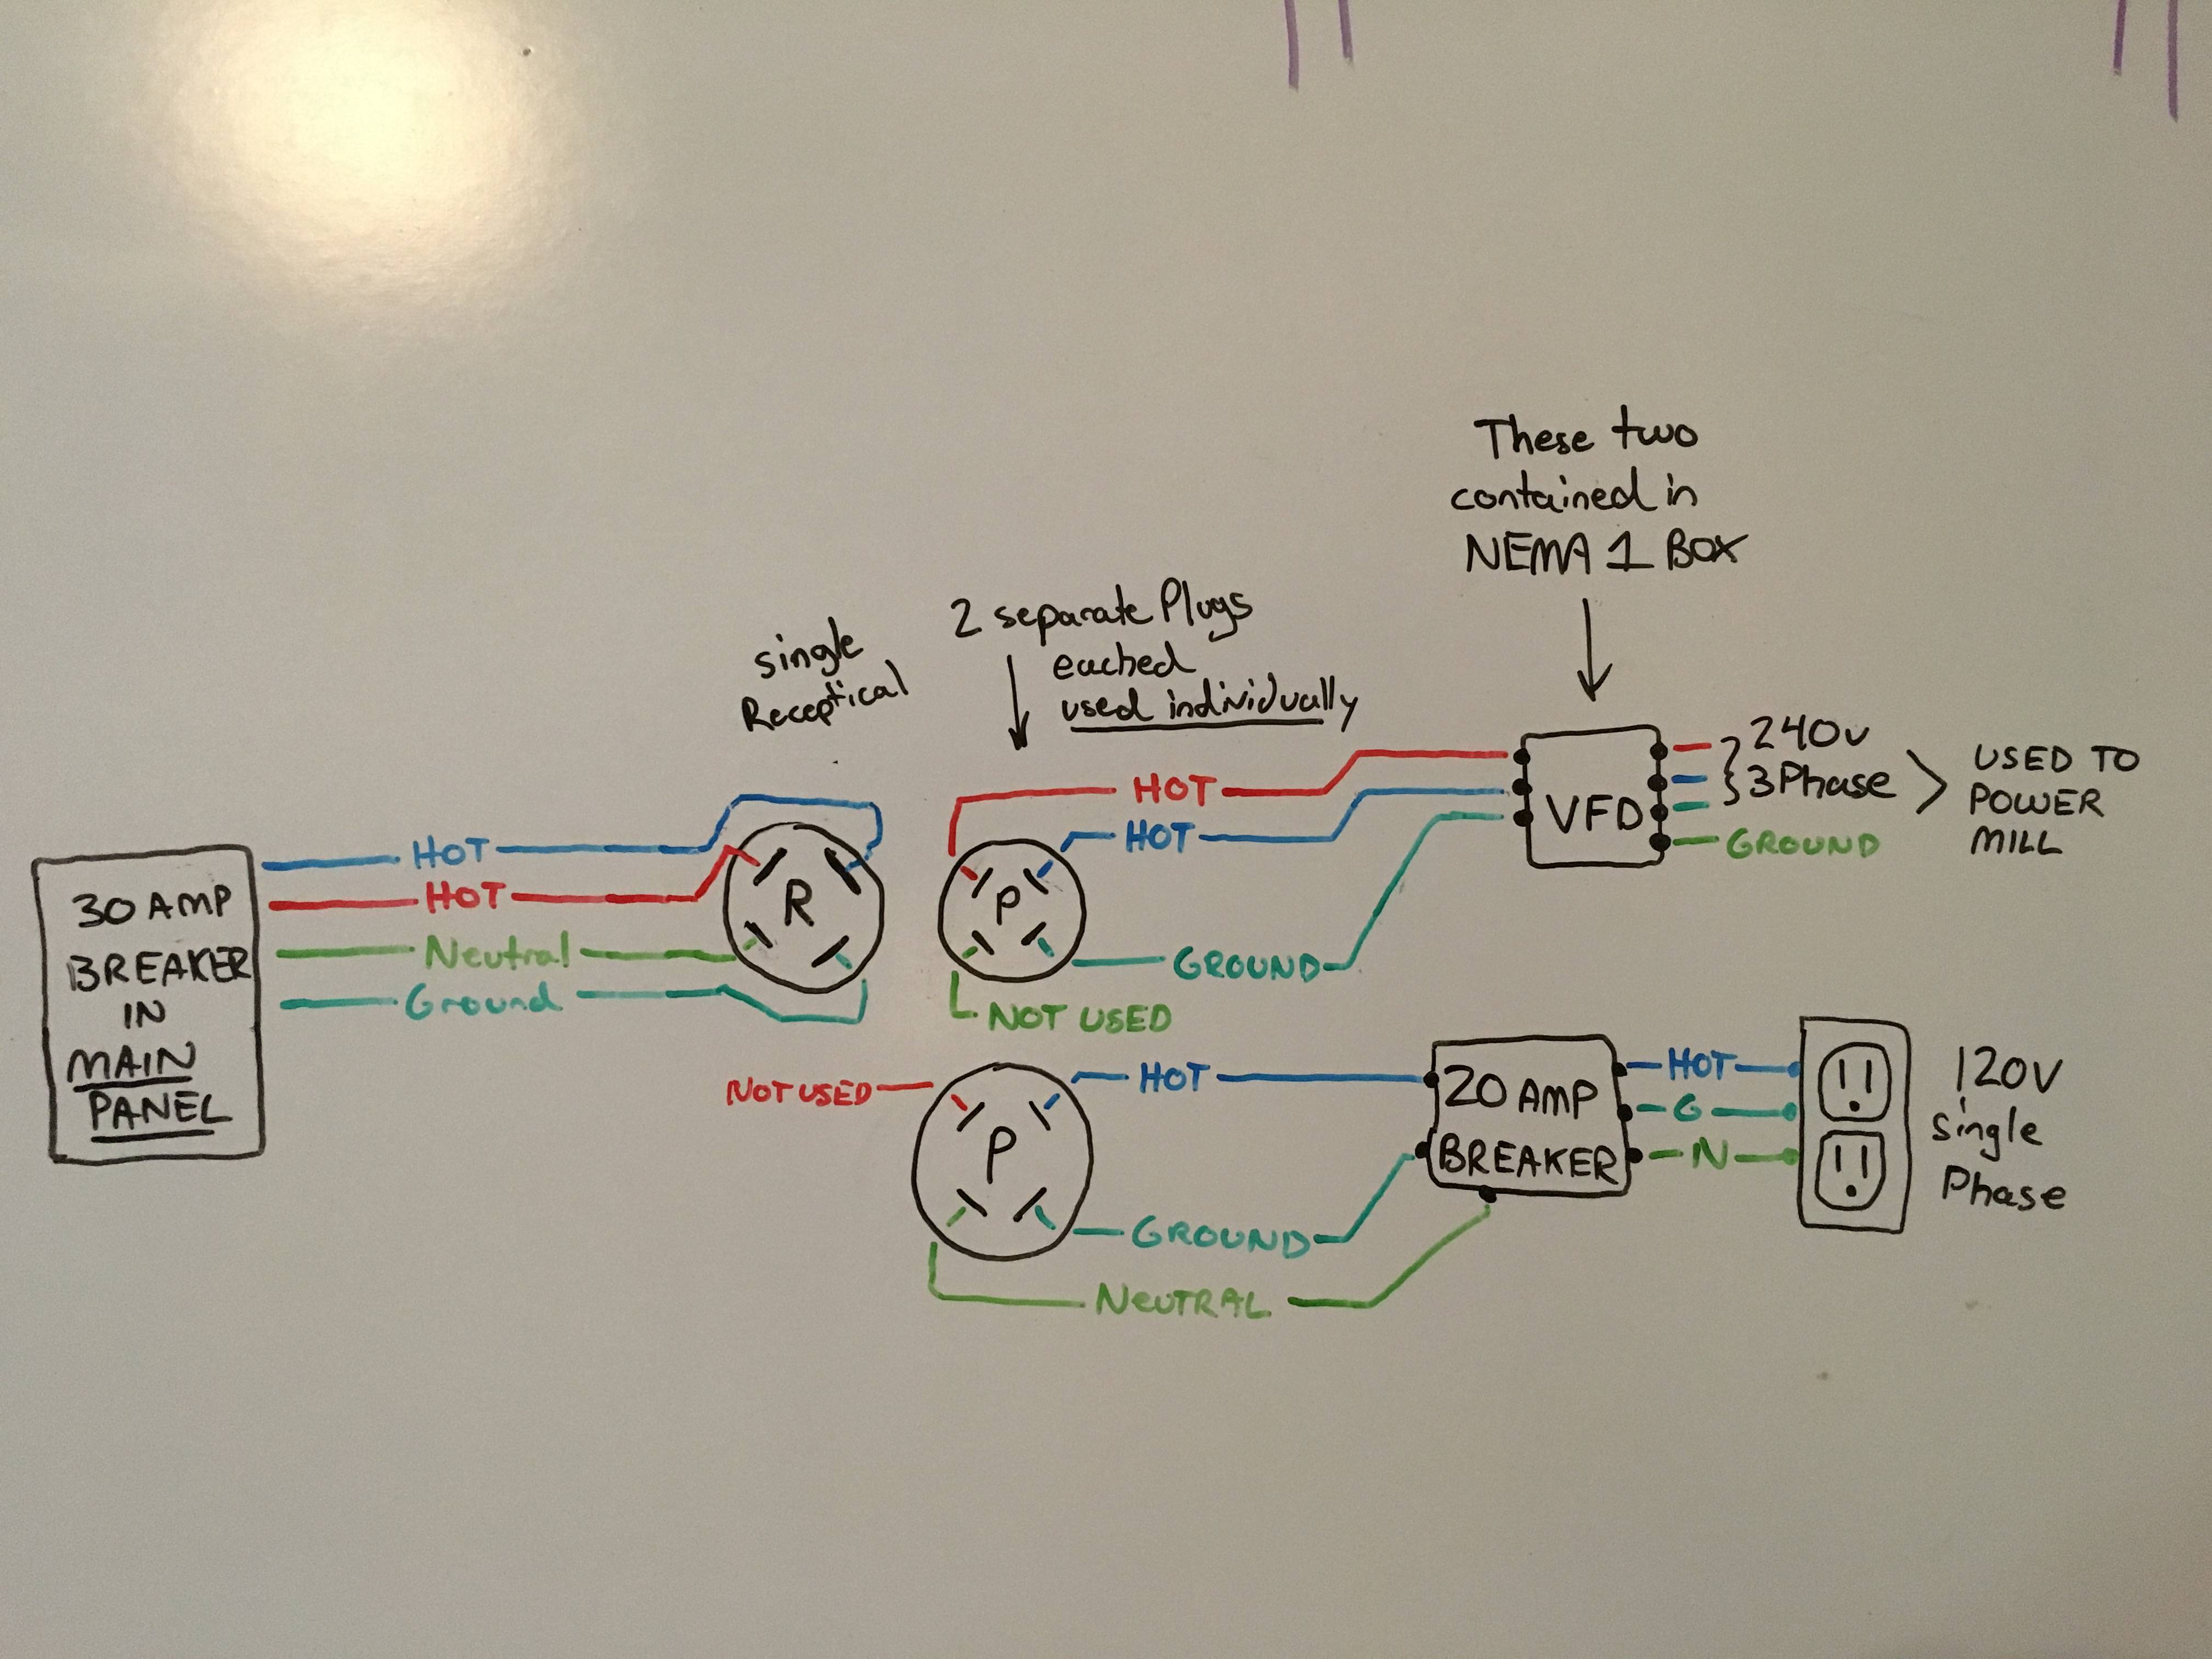 These two
contained in
NEMA 1 BOX
2 separate Plugs
eached
used individually
single
Receptical
30 AMP
BREAKER
IN
MAIN
PANEL
HOT
HOT
Neutral
Ground
R
P
HOT
HOT
GROUND
NOT USED
VFD
240v
3 Phase
GROUND
USED TO
POWER
MILL
NOT USED
P
HOT
GROUND
NEUTRAL
20 AMP
BREAKER
HOT
G
N
120V
Single
Phase